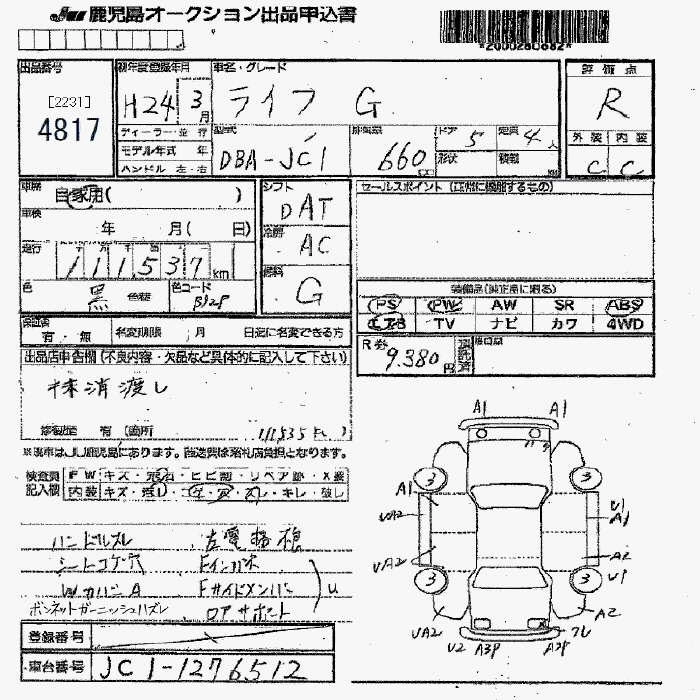 JU 鹿児島オークション出品申込書
*2000280682*
出品番号
[2231]
4817
初年度登録年月
H24 3月
車名・グレード
ライフ G
評価点
R
外装 内装
C C
ディーラー・並行
モデル年式 年
ハンドル 左・右
型式
DBA-JC1
排気量
660
ドア 5
定員 4人
形状
積載
車歴
自家用( )
車検
年 月( 日)
走行
111537km
色
黒 色替
色コード
シフト
DAT
冷房
AC
燃料
G
セールスポイント (正常に機能するもの)
装備品(純正品に限る)
PS PW AW SR ABS
エアB TV ナビ カワ 4WD
保証書
有・無
名変期限 月 日迄に名変できる方
R券
9.380円
出品店申告欄(不良内容・欠品など具体的に記入して下さい)
抹消渡し
修復歴 有 (箇所
111535km )
※廃車はJU鹿児島にあります。陸送費は落札店負担となります。
検査員記入欄
FW キズ・飛石・ヒビ割・リペア跡・X要
内装 キズ・汚れ・コゲ・穴・スレ・キレ・破レ
ハンドルズレ
シートコゲ・穴
WカバンA
ボンネットガーニッシュハズレ
左電格梳
Fインパネ
Fサイドメンバー
ロアサポート
U
登録番号
車台番号
JC1-1276512
A1 A1
3 3
A1
UA2
U1
A1
UA2
A2
3 3
U1
UA2
A2
U2 A3P A3P
ワレ